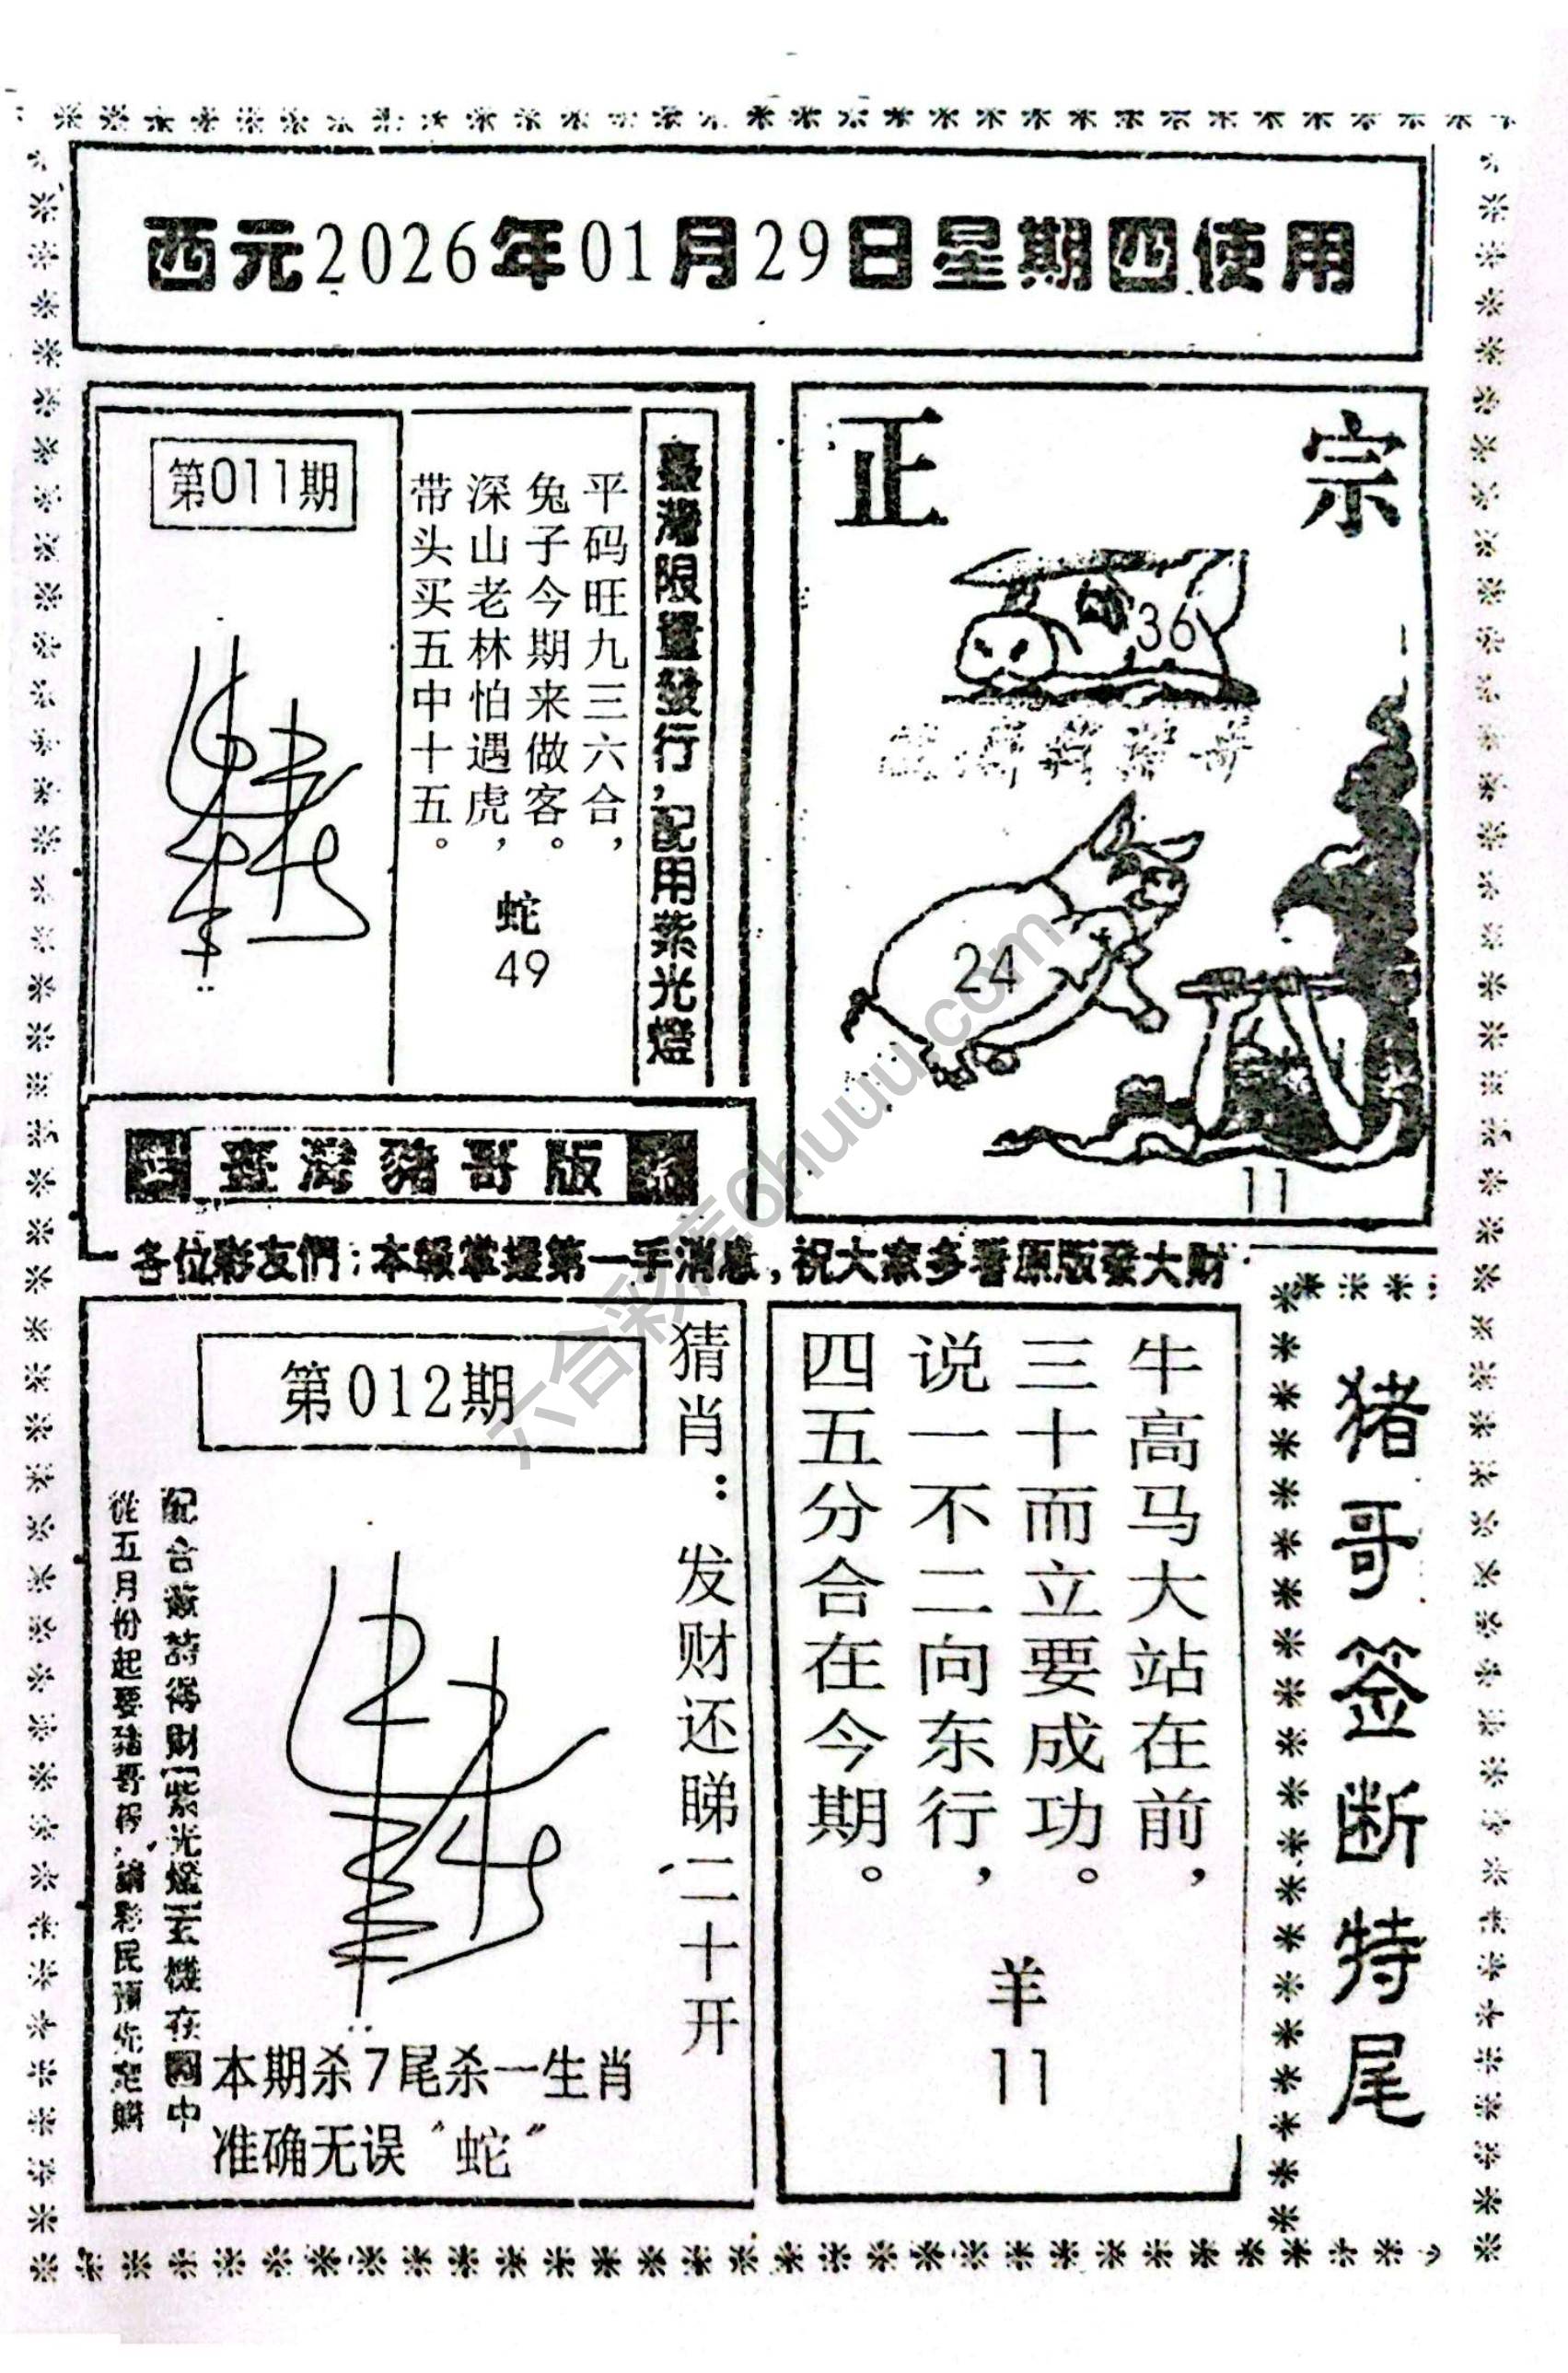 西元2026年01月29日星期四使用
第011期
平码旺九三六合，
兔子今期来做客。
深山老林怕遇虎，
带头买五中十五。
蛇
49
臺灣限量發行，配用紫光燈
正宗
36
24
11
臺灣豬哥版
各位彩友們：本報掌握第一手消息，祝大家多看原版發大財
第012期
猜肖：发财还睇二十开
從五月份起要豬哥榜
本期杀7尾杀一生肖
准确无误“蛇”
牛高马大站在前，
三十而立要成功。
说一不二向东行，
四五分合在今期。
羊
11
猪哥签断特尾
六合彩库6huuu.com